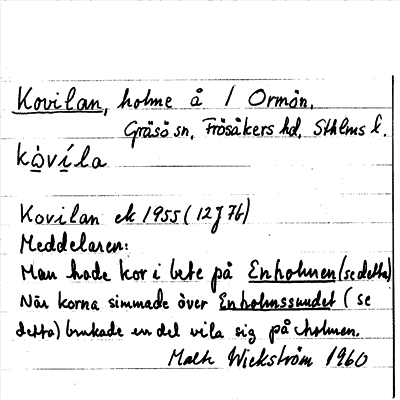 Kovilan, holme å / Ormön,
Gräsö sn, Frösåkers hd, Sthlms l.
kòvíla
Kovilan ek 1955 (12J7b)
Meddelaren:
Man hade kor i bete på Enholmen (se detta)
När korna simmade över Enholmssundet (se
detta) brukade en del vila sig på holmen.
Wickström 1960